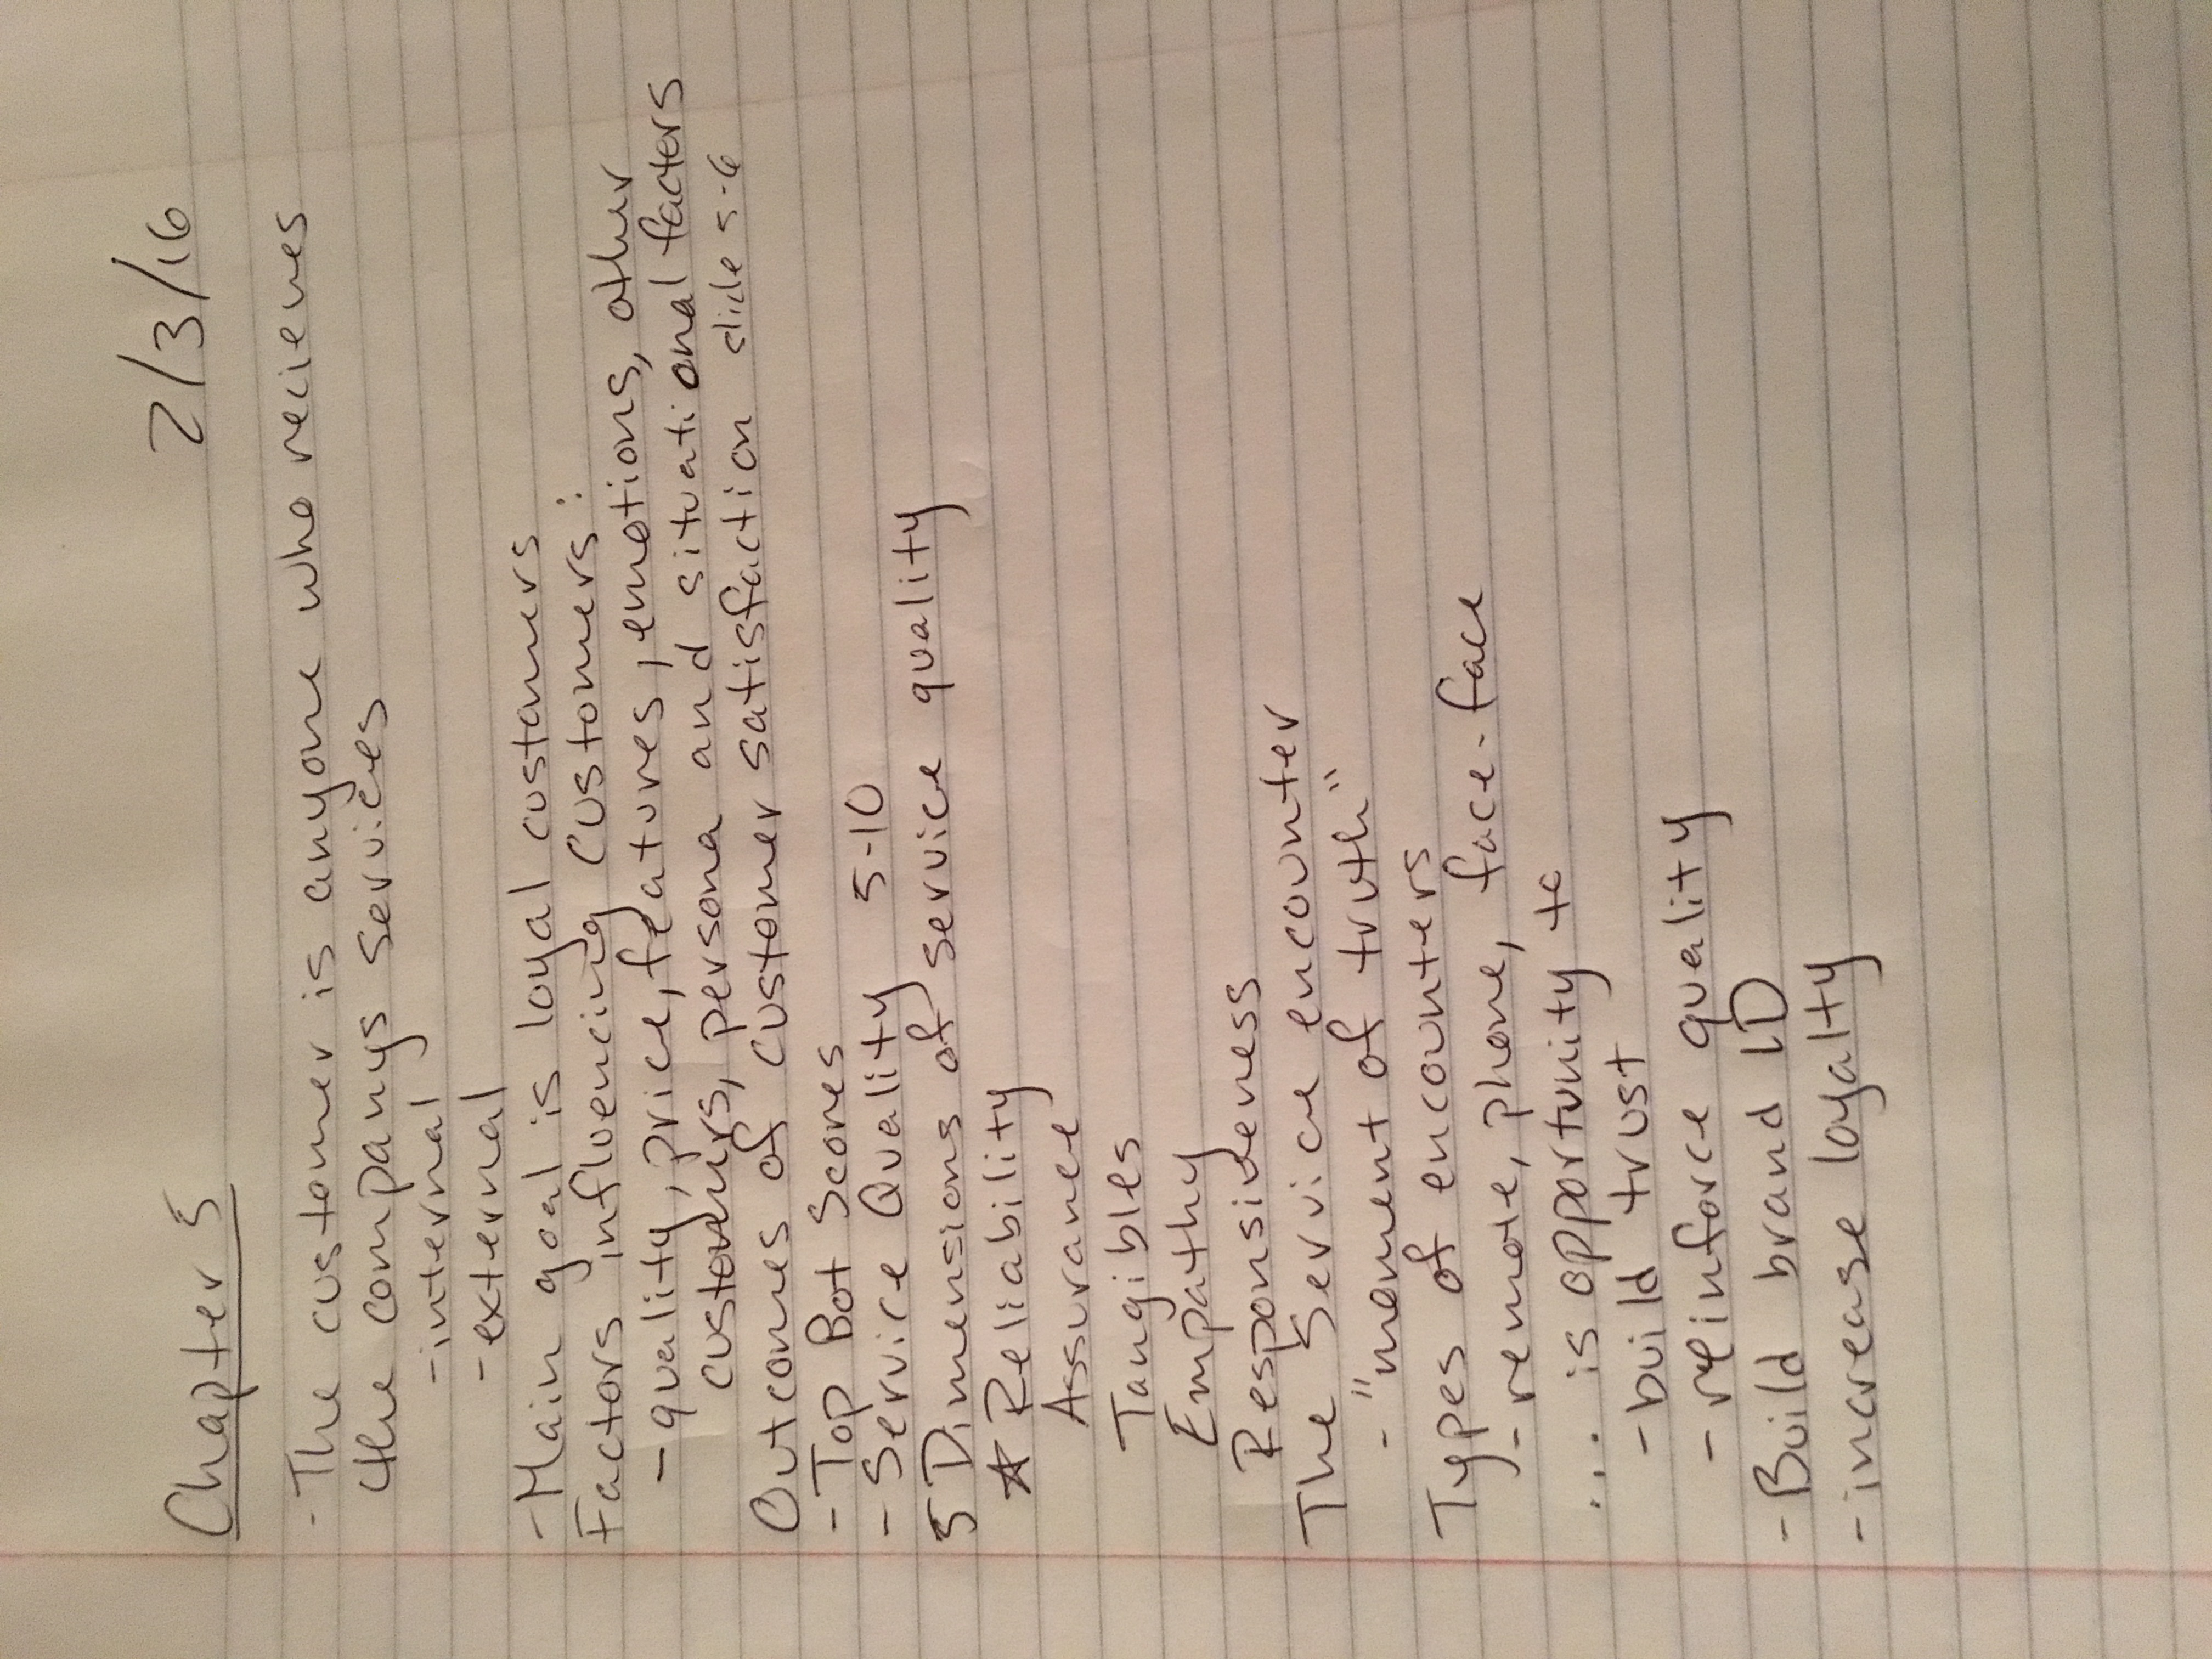 Chapter 5 2/3/16
- The customer is anyone who recieves
the companys services
- internal
- external
- Main goal is loyal customers
Factors influencing customers:
- quality, price, features, emotions, other
customers, persona and situational factors
Outcomes of customer satisfaction slide 5-6
- Top Bot Scores
- Service Quality 5-10
5 Dimensions of service quality
★ Reliability
Assurance
Tangibles
Empathy
Responsiveness
The Service encounter
- "moment of truth"
Types of encounters
- remote, phone, face-face
... is opportunity to
- build trust
- reinforce quality
- Build brand ID
- increase loyalty